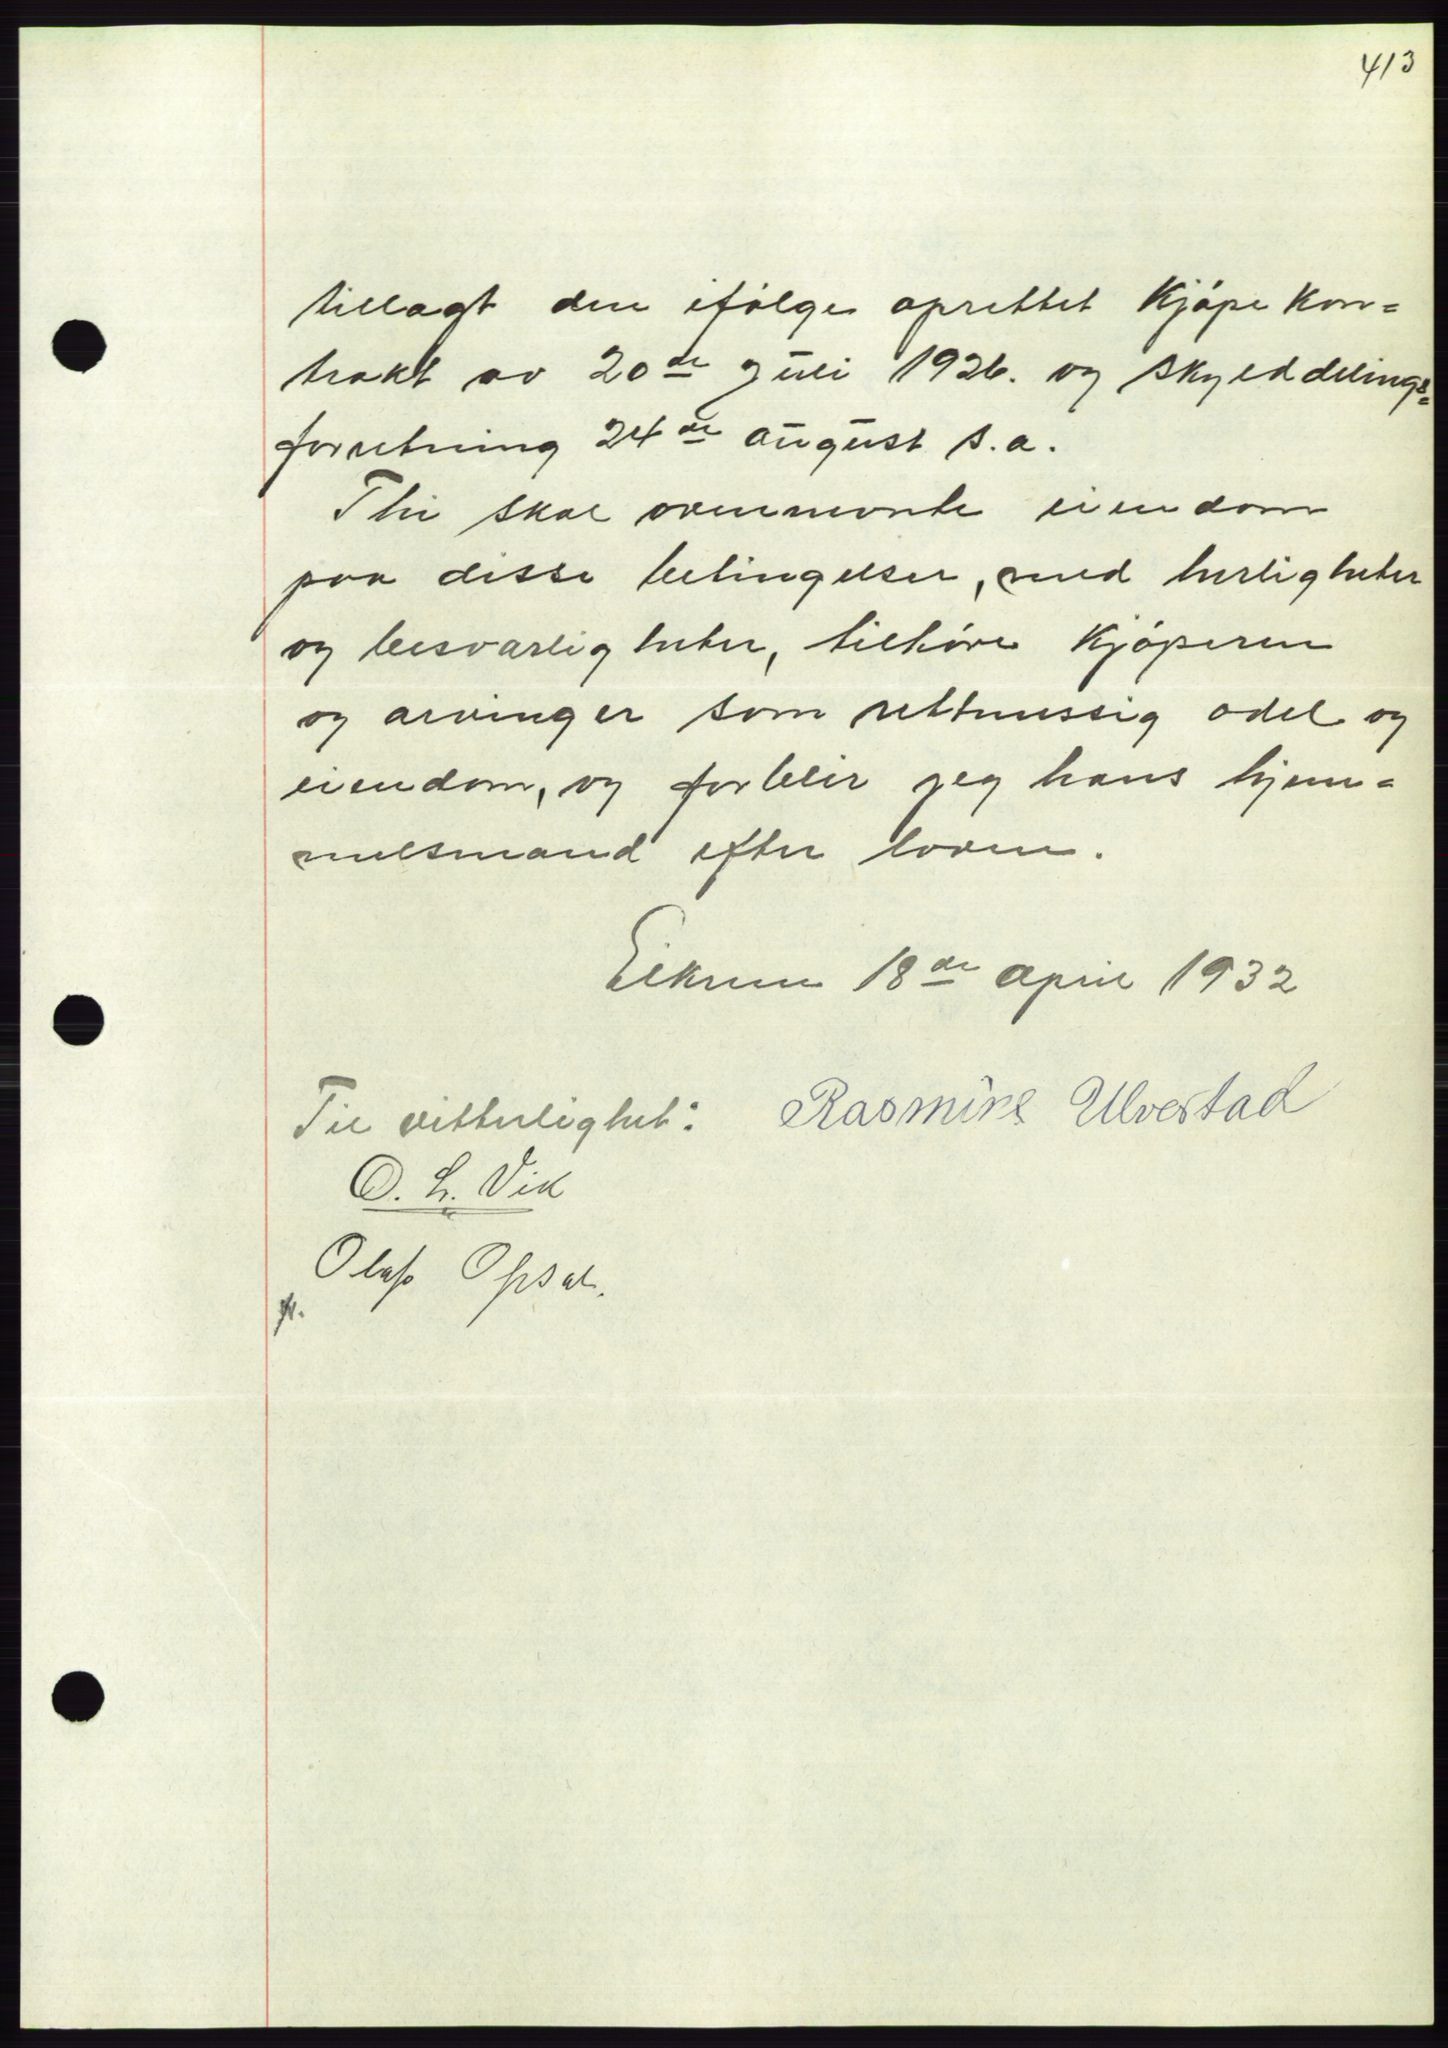 413
tillagt den ifølge oprettet Kjøpe Kon=
trakt av 20de Juli 1926. og skylddelings=
forretning 24de august s.a.
Thi skal ovennevnte eiendom
paa disse betingelser, med herligheter
og besværligheter, tilhøre Kjøperen
og arvinger som rettmessig odel og
eiendom, og forblir jeg hans hjem=
melsmand efter loven.
Eikrem 18de april 1932
Til vitterlighet: Rasmine Ulvestad
O. L. Vik
Olaf Opsal.